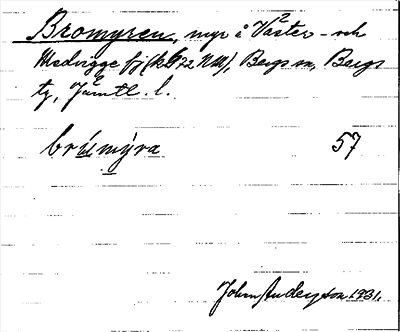 Bromyren, myr å Väster- och
Hsdrigge fj (kbl 22 NV), Bergs sn, Bergs
tg, Jämtl. l.
brúmýra 57
John Anderzson 1931.